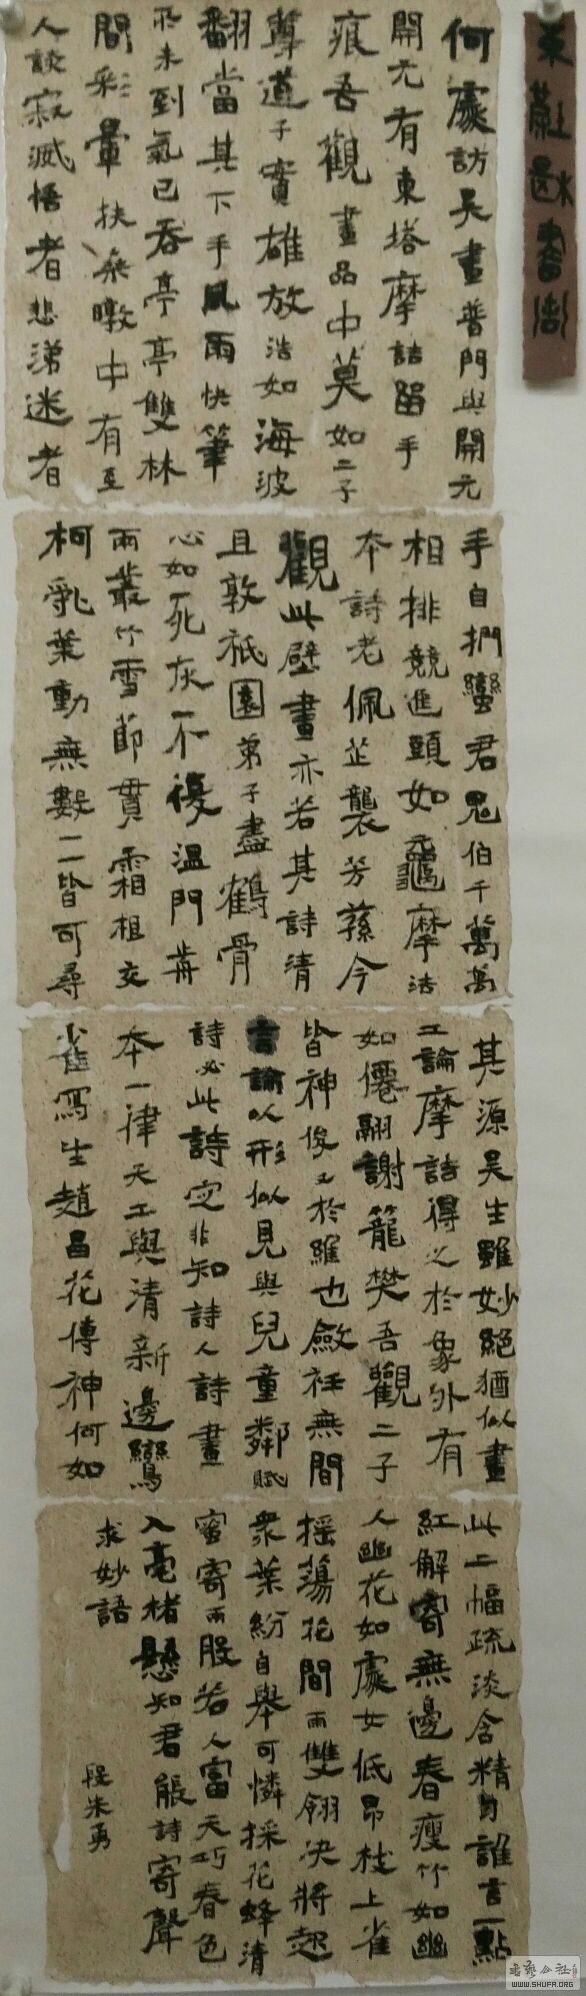 何處訪吳畫普門與開元
開元有東塔摩詰留手
痕吾觀畫品中莫如二子
尊道子實雄放浩如海波
翻當其下手風雨快筆
所未到氣已吞亭亭雙林
間彩暈扶桑暾中有至
人談寂滅悟者悲涕迷者
手自捫蠻君鬼伯千萬萬
相排競進頭如黿摩詰
本詩老佩芷襲芳蓀今
觀此壁畫亦若其詩清
且敦祇園弟子盡鶴骨
心如死灰不復溫門前
兩叢竹雪節貫霜根交
柯亂葉動無數一一皆可尋
其源吳生雖妙絕猶似畫
工論摩詰得之於象外有
如僊翮謝籠樊吾觀二子
皆神俊又於維也斂衽無間
言論以形似見與兒童鄰賦
詩必此詩定非知詩人詩畫
本一律天工與清新邊鸞
雀寫生趙昌花傳神何如
此二幅疏淡含精勻誰言一點
紅解寄無邊春瘦竹如幽
人幽花如處女低昂枝上雀
搖蕩花間雨雙翎決將起
衆葉紛自舉可憐採花蜂清
蜜寄兩股若人富天巧春色
入毫楮懸知君能詩寄聲
求妙語
段朱勇
WWW.SHUFA.ORG